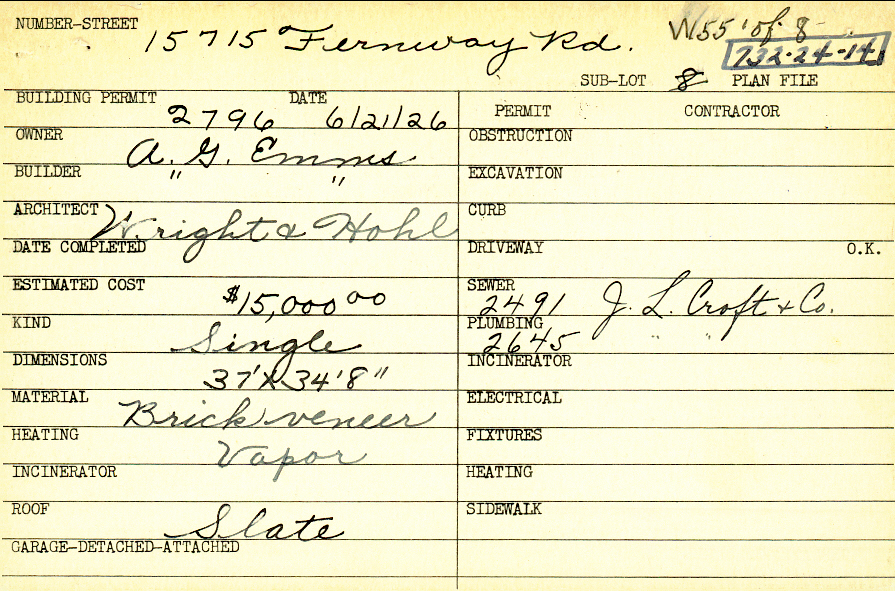 NUMBER-STREET 15715 Fernway Rd. W55' of 8
732-24-14
SUB-LOT 8 PLAN FILE
BUILDING PERMIT 2796 DATE 6/21/26
OWNER A. G. Emms
BUILDER " "
ARCHITECT Wright & Hohl
DATE COMPLETED
ESTIMATED COST $15,000 00
KIND Single
DIMENSIONS 37'X34'8"
MATERIAL Brick veneer
HEATING Vapor
INCINERATOR
ROOF Slate
GARAGE-DETACHED-ATTACHED
PERMIT CONTRACTOR
OBSTRUCTION
EXCAVATION
CURB
DRIVEWAY O.K.
SEWER 2491 J. L. Croft & Co.
PLUMBING 2645 " "
INCINERATOR
ELECTRICAL
FIXTURES
HEATING
SIDEWALK